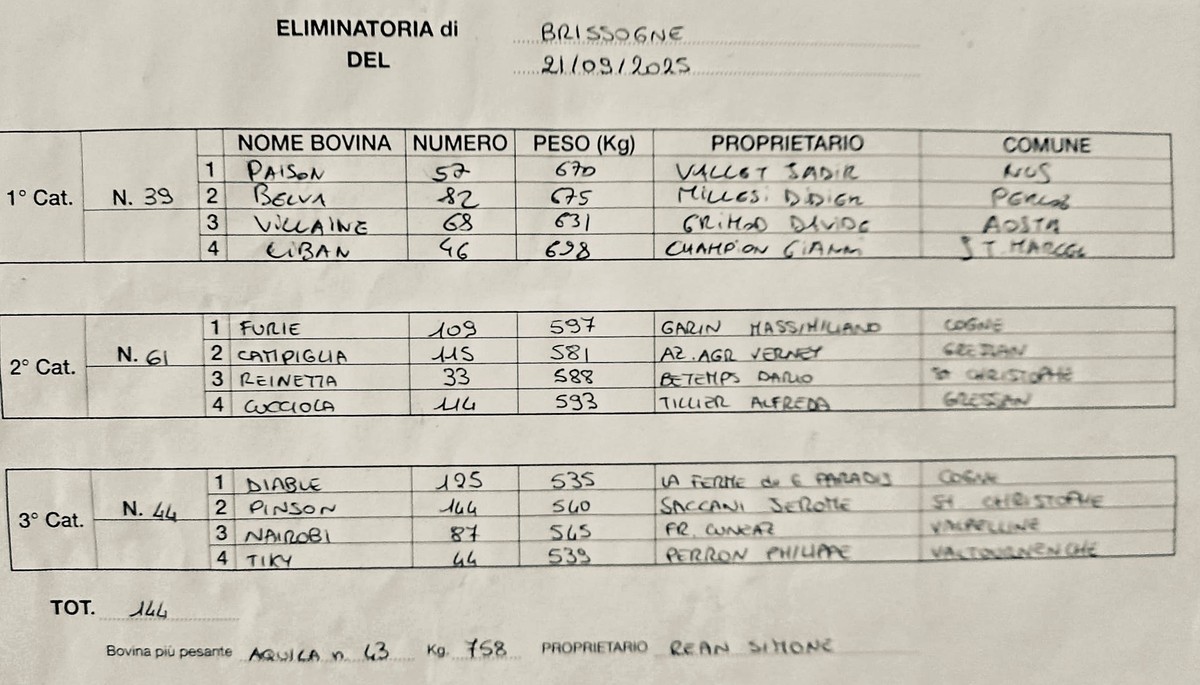 ELIMINATORIA di BRISSOGNE
DEL 21/09/2025
NOME BOVINA NUMERO PESO (Kg) PROPRIETARIO COMUNE
1° Cat. N. 39
1 PAISON 57 670 VALLET JADIR NUS
2 BELVA 82 675 MILLESI DIDIER PERLOZ
3 VILLAINE 68 631 GRIMOD DAVIDE AOSTA
4 LIBAN 46 698 CHAMPION GIANNI ST. MARCEL
2° Cat. N. 61
1 FURIE 109 597 GARIN MASSIMILIANO COGNE
2 CAMPIGLIA 115 581 AZ. AGR VERNEY GRESSAN
3 REINETTA 33 588 BETEMPS DARIO ST CHRISTOPHE
4 CUCCIOLA 114 593 TILLIER ALFREDA GRESSAN
3° Cat. N. 44
1 DIABLE 125 535 LA FERME du G PARADIS COGNE
2 PINSON 144 540 SACCANI JEROME St CHRISTOPHE
3 NAIROBI 87 545 FR. CUNEAZ VALPELLINE
4 TIKY 44 539 PERRON PHILIPPE VALTOURNENCHE
TOT. 144
Bovina più pesante AQUILA n. 43 Kg. 758 PROPRIETARIO REAN SIMONE